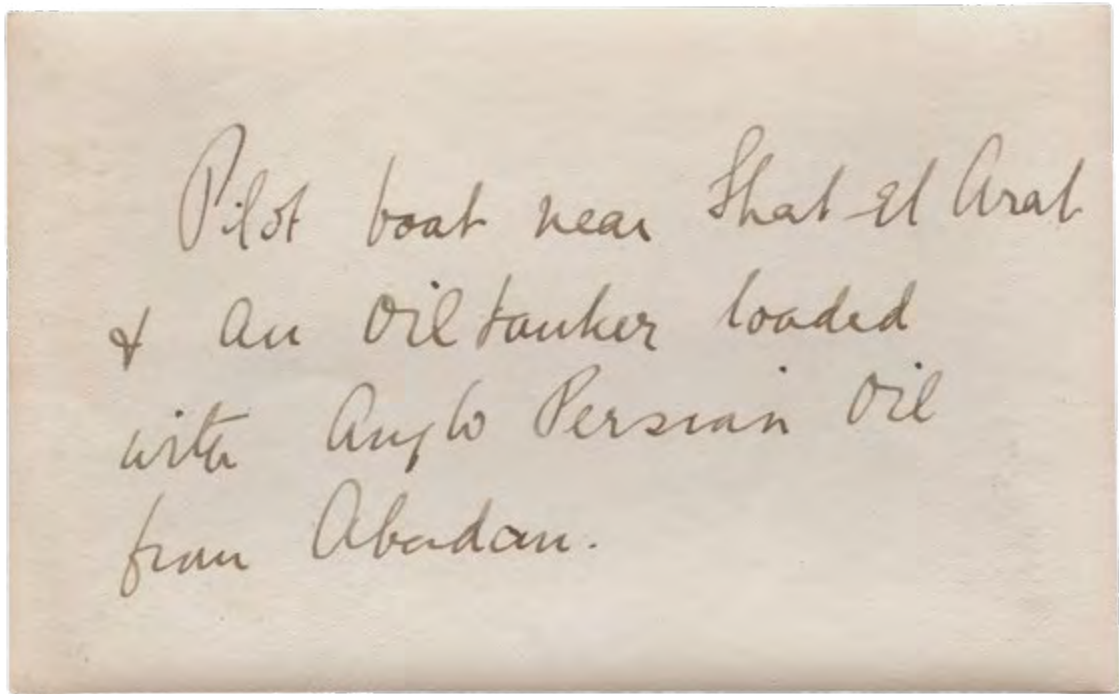 Pilot boat near Shat El Arab
& an Oil tanker loaded
with Anglo Persian Oil
from Abadan.